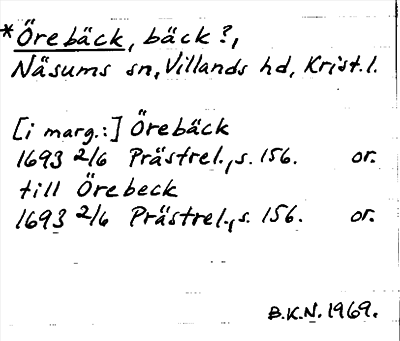 *Örebäck, bäck?,
Näsums sn, Villands hd, Krist. l.
[i marg.:] Örebäck
1693 2/6 Prästrel., s. 156. or.
till Örebeck
1693 2/6 Prästrel., s. 156. or.
B.K.N. 1969.